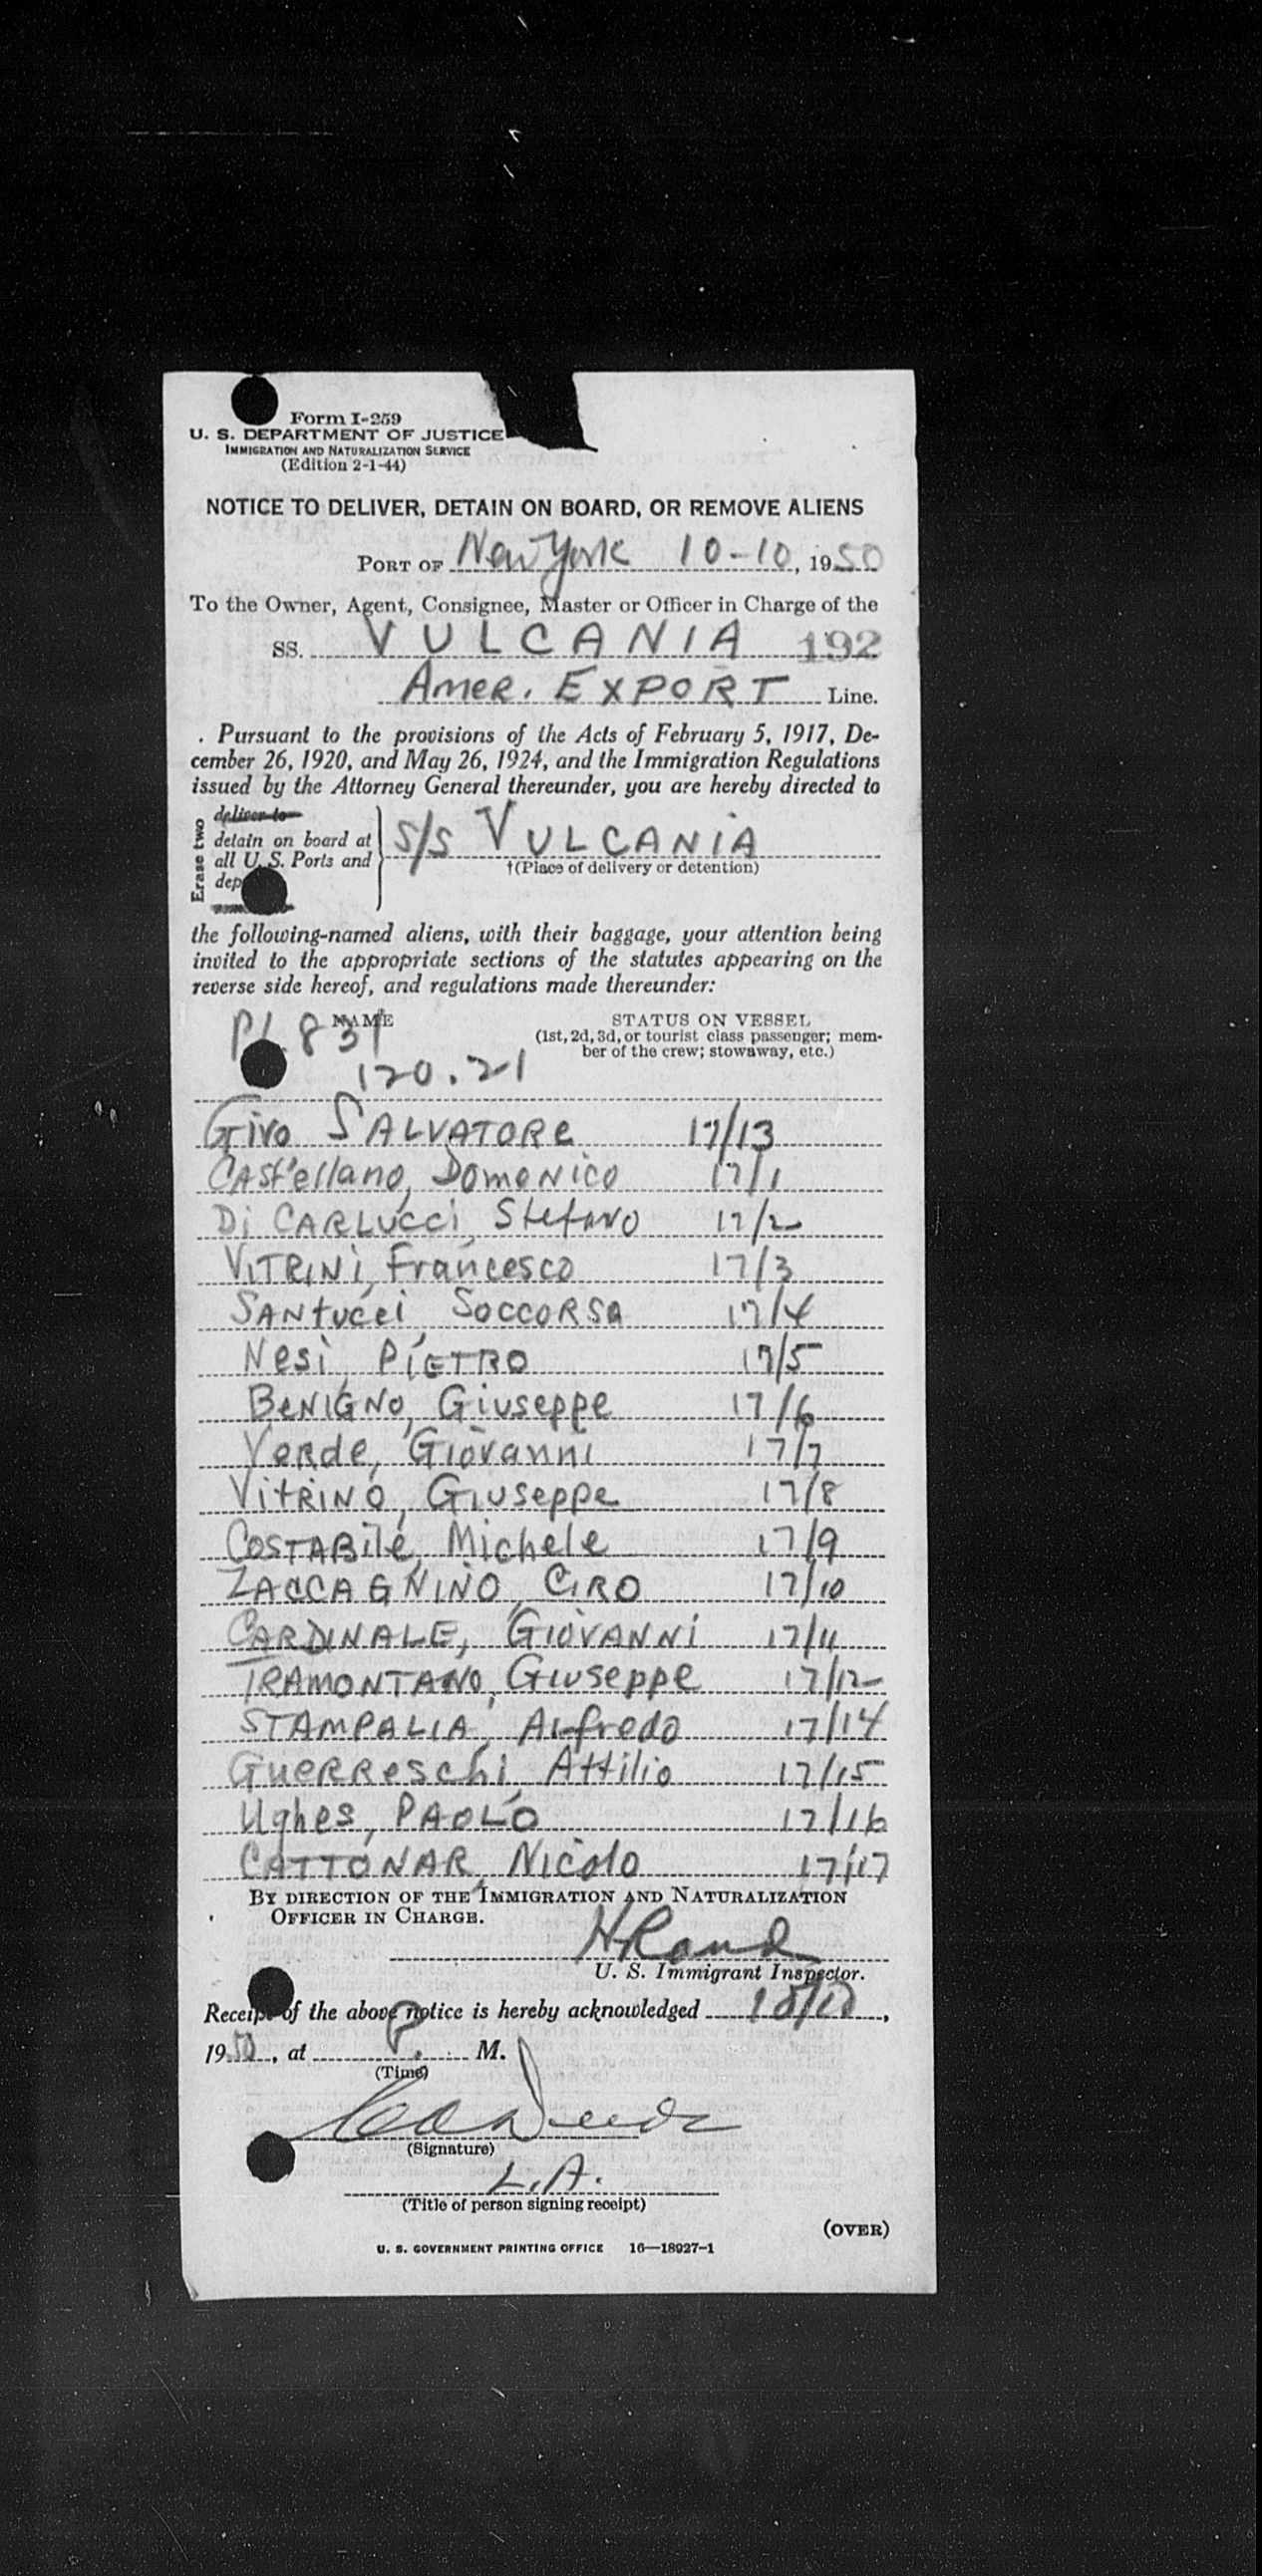 Form I-259
U. S. DEPARTMENT OF JUSTICE
IMMIGRATION AND NATURALIZATION SERVICE
(Edition 2-1-44)
NOTICE TO DELIVER, DETAIN ON BOARD, OR REMOVE ALIENS
PORT OF New York 10-10, 1950
To the Owner, Agent, Consignee, Master or Officer in Charge of the
SS. VULCANIA 192
Amer. EXPORT Line.
Pursuant to the provisions of the Acts of February 5, 1917, De-
cember 26, 1920, and May 26, 1924, and the Immigration Regulations
issued by the Attorney General thereunder, you are hereby directed to
Erase two
deliver to
detain on board at
all U. S. Ports and
dep
S/S VULCANIA
†(Place of delivery or detention)
the following-named aliens, with their baggage, your attention being
invited to the appropriate sections of the statutes appearing on the
reverse side hereof, and regulations made thereunder:
NAME STATUS ON VESSEL
(1st, 2d, 3d, or tourist class passenger; mem-
ber of the crew; stowaway, etc.)
P.L. 831
120.21
Givo SALVATORe 17/13
CASTellano, Domenico 17/1
Di CARLUCCi, Stefano 17/2
VITRINi, Francesco 17/3
SANtucci, SoccoRSa 17/4
Nesi, PiETRO 17/5
BeNIGNO, Giuseppe 17/6
VeRde, Giovanni 17/7
VitRINO, Giuseppe 17/8
COSTABile, Michele 17/9
ZACCAGNINO, CIRO 17/10
CARDINALE, GIOVANNi 17/11
TRAMONTANO, Giuseppe 17/12
STAMPALIA, Alfredo 17/14
GueRReschi, Attilio 17/15
Ughes, PAOLO 17/16
CATTONAR, Nicolo 17/17
BY DIRECTION OF THE IMMIGRATION AND NATURALIZATION
OFFICER IN CHARGE.
U. S. Immigrant Inspector.
Receipt of the above notice is hereby acknowledged 10/10,
1950, at P. M.
(Time)
(Signature)
L.A.
(Title of person signing receipt)
(OVER)
U. S. GOVERNMENT PRINTING OFFICE 16—18927-1